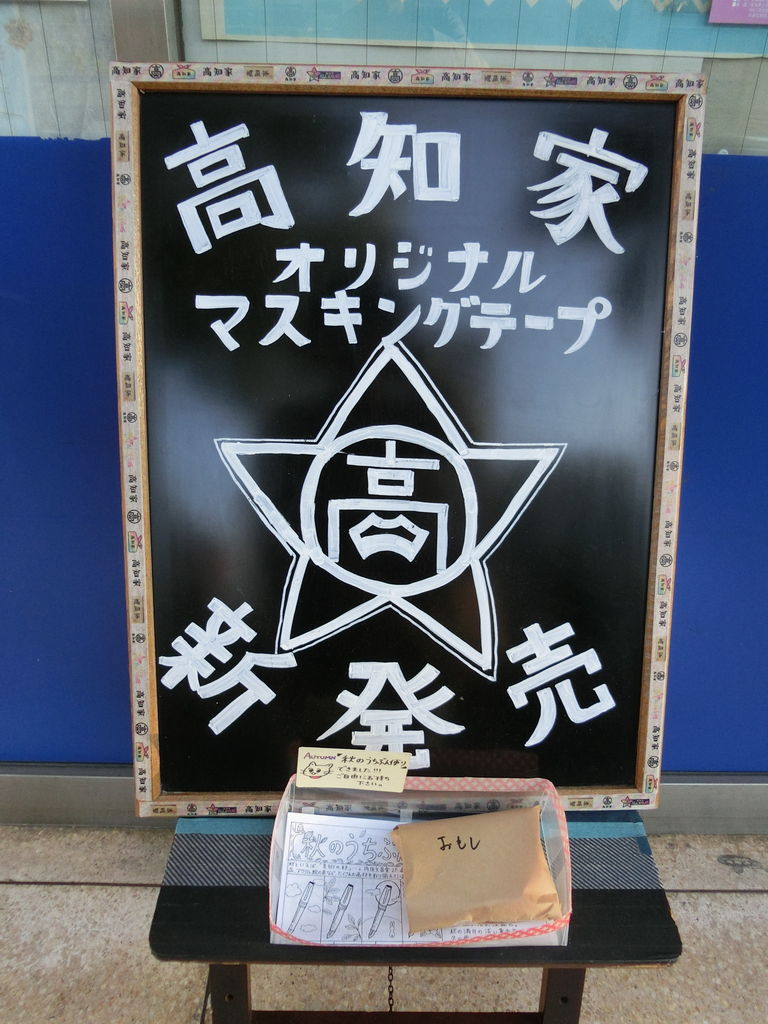 高知家
オリジナル
マスキングテープ
高
新発売
AUTUMN 秋のうちぶんばり
できました!!!
ご自由にお持ち
下さい。
秋のうちぶん
おもし